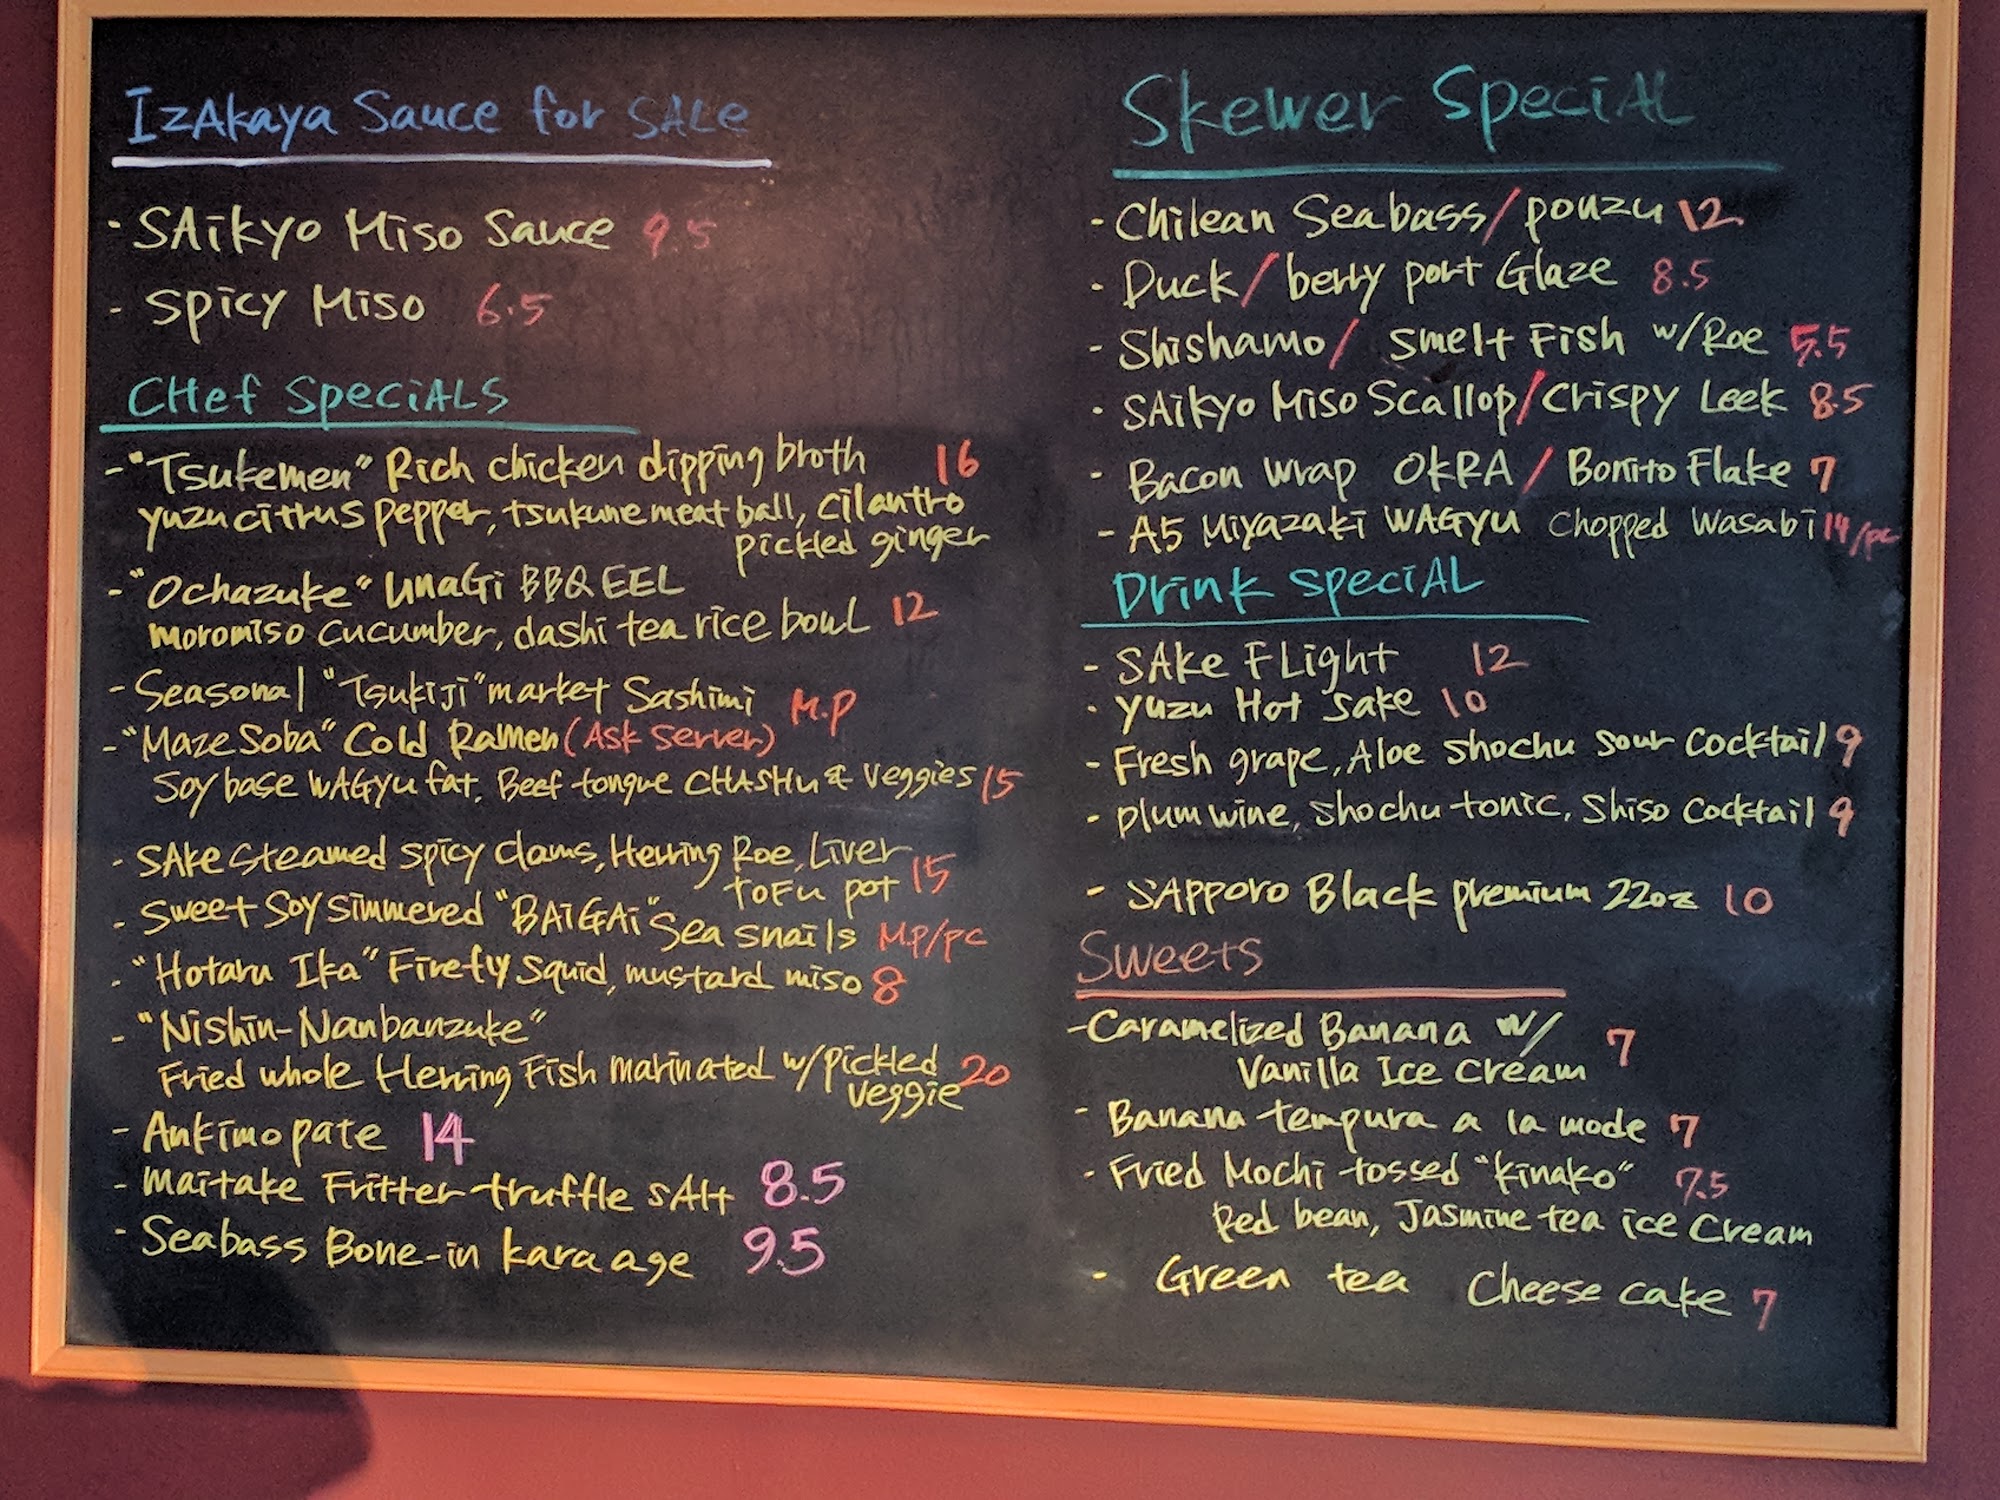 IzAkaya Sauce for SALe
- SAikyo Miso Sauce 9.5
- Spicy Miso 6.5
CHef SpeciALS
- "Tsukemen" Rich chicken dipping broth 16
yuzu citrus pepper, tsukune meat ball, cilantro
pickled ginger
- "Ochazuke" UnaGi BBQ EEL
moromiso cucumber, dashi tea rice bowl 12
- Seasonal "Tsukiji" market Sashimi M.P
- "Maze Soba" Cold Ramen (Ask Server)
Soy base WAGyu fat, Beef tongue CHASHu & Veggies 15
- SAke Steamed spicy clams, Herring Roe, Liver
ToFu pot 15
- Sweet Soy Simmered "BAiGAi" Sea snails M.P/pc
- "Hotaru Ika" Firefly Squid, mustard miso 8
- "Nishin-Nanbanzuke"
Fried whole Herring Fish marinated w/pickled
veggie 20
- Ankimo pate 14
- Maitake Fritter truffle sAlt 8.5
- Seabass Bone-in kara age 9.5
Skewer SpeciAL
- Chilean Seabass/ponzu 12
- Duck/berry port Glaze 8.5
- Shishamo/ Smelt Fish w/Roe 5.5
- SAikyo Miso Scallop/Crispy Leek 8.5
- Bacon wrap OKRA/ Bonito Flake 7
- A5 Miyazaki WAGyu Chopped Wasabi 14/pc
Drink SpeciAL
- SAke FLight 12
- yuzu Hot Sake 10
- Fresh grape, Aloe Shochu Sour Cocktail 9
- plum wine, Shochu tonic, Shiso Cocktail 9
- SApporo Black premium 22oz 10
Sweets
- Caramelized Banana w/ 7
Vanilla Ice Cream
- Banana tempura a la mode 7
- Fried Mochi tossed "kinako" 7.5
Red bean, Jasmine tea ice Cream
- Green tea Cheese cake 7